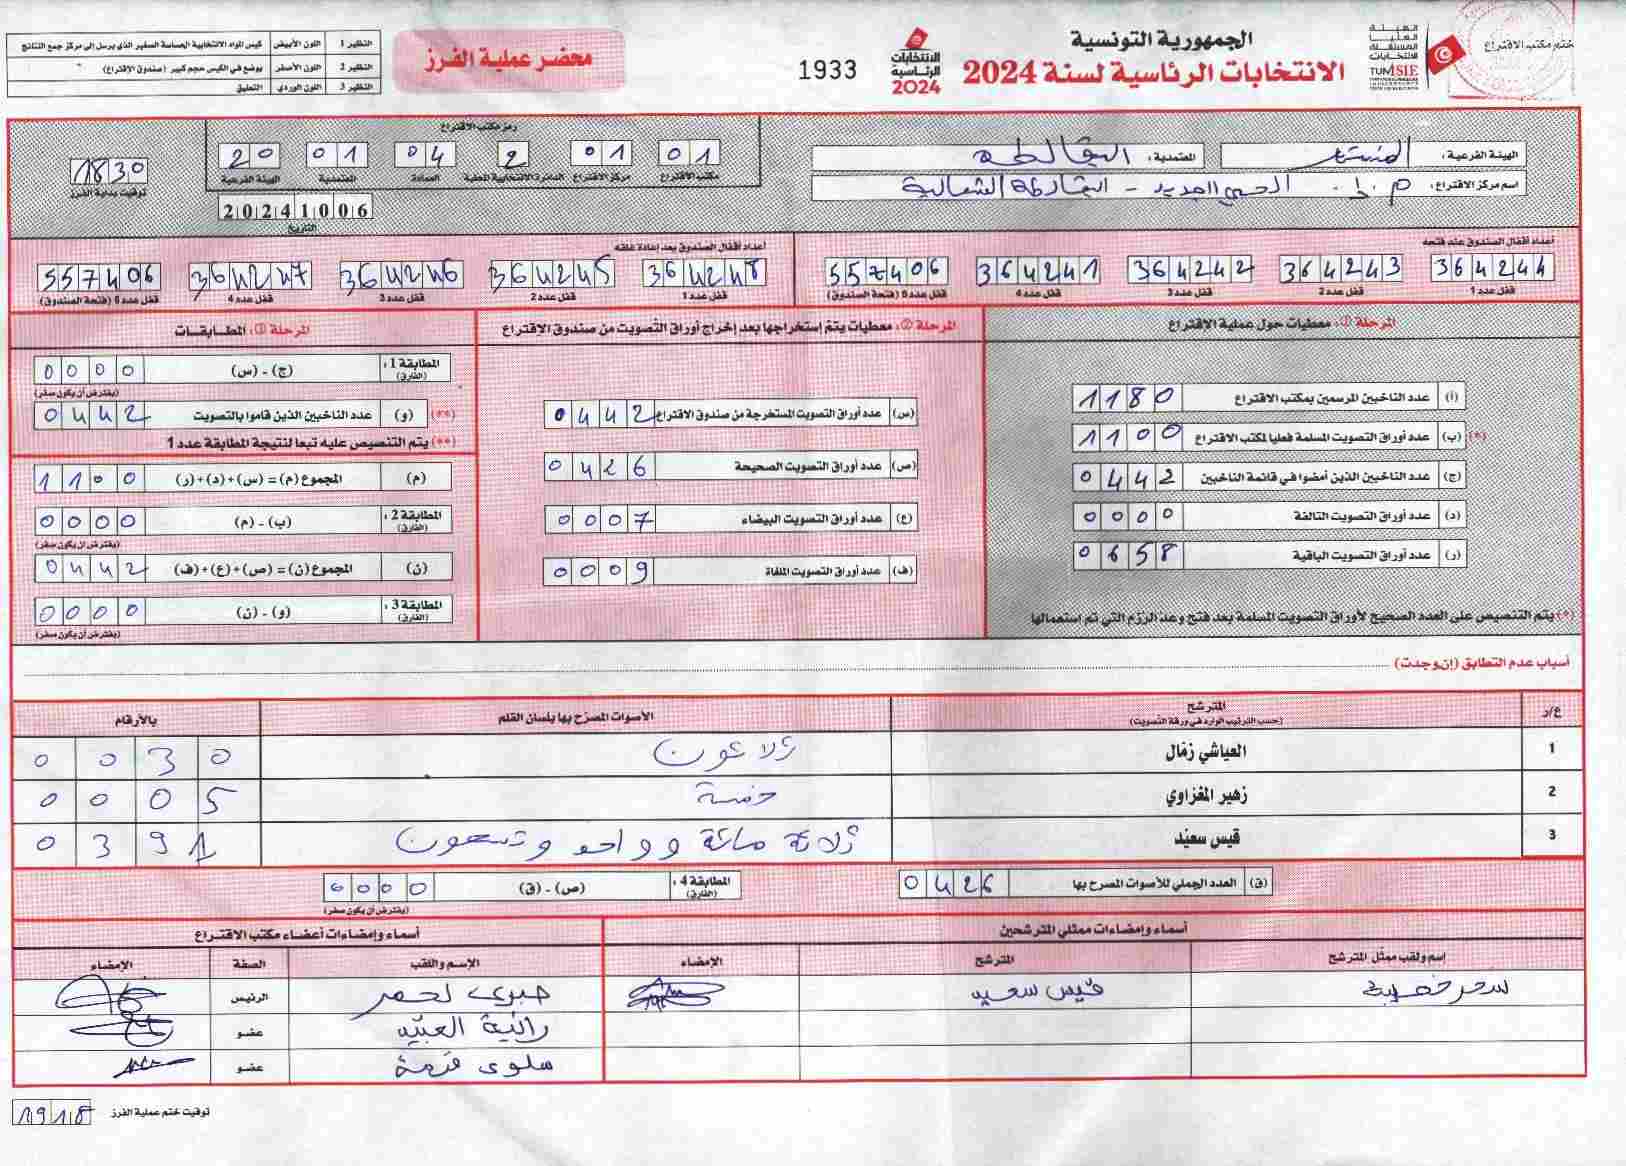 النظير 1 اللون الأبيض كيس المواد الانتخابية الحساسة الصغير الذي يرسل إلى مركز جمع النتائج
النظير 2 اللون الأصفر يوضع في الكيس حجم كبير (صندوق الإقتراع)
النظير 3 اللون الوردي التعليق
محضر عملية الفرز
1933
الانتخابات الرئاسية 2024
الجمهورية التونسية
الانتخابات الرئاسية لسنة 2024
الهيئة العليا المستقلة للانتخابات
TUNISIE
ختم مكتب الاقتراع
الهيئة الفرعية : المنستير
المعتمدية : البقالطة
اسم مركز الاقتراع : م. إ. الحي الجديد - البقالطة الشمالية
رمز مكتب الاقتراع
01 مكتب الاقتراع
01 مركز الاقتراع
2 الدائرة الانتخابية المحلية
04 العمادة
01 المعتمدية
20 الهيئة الفرعية
20241006
التاريخ
1830
توقيت بداية الفرز
أعداد أقفال الصندوق عند فتحه
364244 قفل عدد 1
364243 قفل عدد 2
364242 قفل عدد 3
364241 قفل عدد 4
557406 قفل عدد 5 (فتحة الصندوق)
أعداد أقفال الصندوق بعد إعادة غلقه
364248 قفل عدد 1
364245 قفل عدد 2
364246 قفل عدد 3
364247 قفل عدد 4
557406 قفل عدد 5 (فتحة الصندوق)
المرحلة ①: معطيات حول عملية الاقتراع
(أ) عدد الناخبين المرسمين بمكتب الاقتراع 1180
(*) (ب) عدد أوراق التصويت المسلمة فعليا لمكتب الاقتراع 1100
(ج) عدد الناخبين الذين أمضوا في قائمة الناخبين 0442
(د) عدد أوراق التصويت التالفة 0000
(ر) عدد أوراق التصويت الباقية 0658
(*) يتم التنصيص على العدد الصحيح لأوراق التصويت المسلمة بعد فتح وعد الرزم التي تم استعمالها
المرحلة ②: معطيات يتم إستخراجها بعد إخراج أوراق التصويت من صندوق الاقتراع
(س) عدد أوراق التصويت المستخرجة من صندوق الاقتراع 0442
(ص) عدد أوراق التصويت الصحيحة 0426
(ع) عدد أوراق التصويت البيضاء 0007
(ف) عدد أوراق التصويت الملغاة 0009
المرحلة ③: المطابقات
المطابقة 1 : (الفارق) (ج) - (س) 0000
(يفترض أن يكون صفر)
(**) (و) عدد الناخبين الذين قاموا بالتصويت 0442
(**) يتم التنصيص عليه تبعا لنتيجة المطابقة عدد 1
(م) المجموع (م) = (س) + (د) + (ر) 1100
المطابقة 2 : (الفارق) (ب) - (م) 0000
(يفترض أن يكون صفر)
(ن) المجموع (ن) = (ص) + (ع) + (ف) 0442
المطابقة 3 : (الفارق) (و) - (ن) 0000
(يفترض أن يكون صفر)
أسباب عدم التطابق (إن وجدت)
ع/ر المترشح (حسب الترتيب الوارد في ورقة التصويت) الأصوات المصرح بها بلسان القلم بالأرقام
1 العياشي زمال ثلاثون 0030
2 زهير المغزاوي خمسة 0005
3 قيس سعيد ثلاثة مائة وواحد وتسعون 0391
(ق) العدد الجملي للأصوات المصرح بها 0426
المطابقة 4 : (الفارق) (ص) - (ق) 0000
(يفترض أن يكون صفر)
أسماء وإمضاءات ممثلي المترشحين
اسم ولقب ممثل المترشح المترشح الإمضاء
قيس سعيد
أسماء وإمضاءات أعضاء مكتب الاقتراع
الإسم واللقب الصفة الإمضاء
صبري لحمر الرئيس
رانية عضو
سلوى عضو
توقيت ختم عملية الفرز 1918